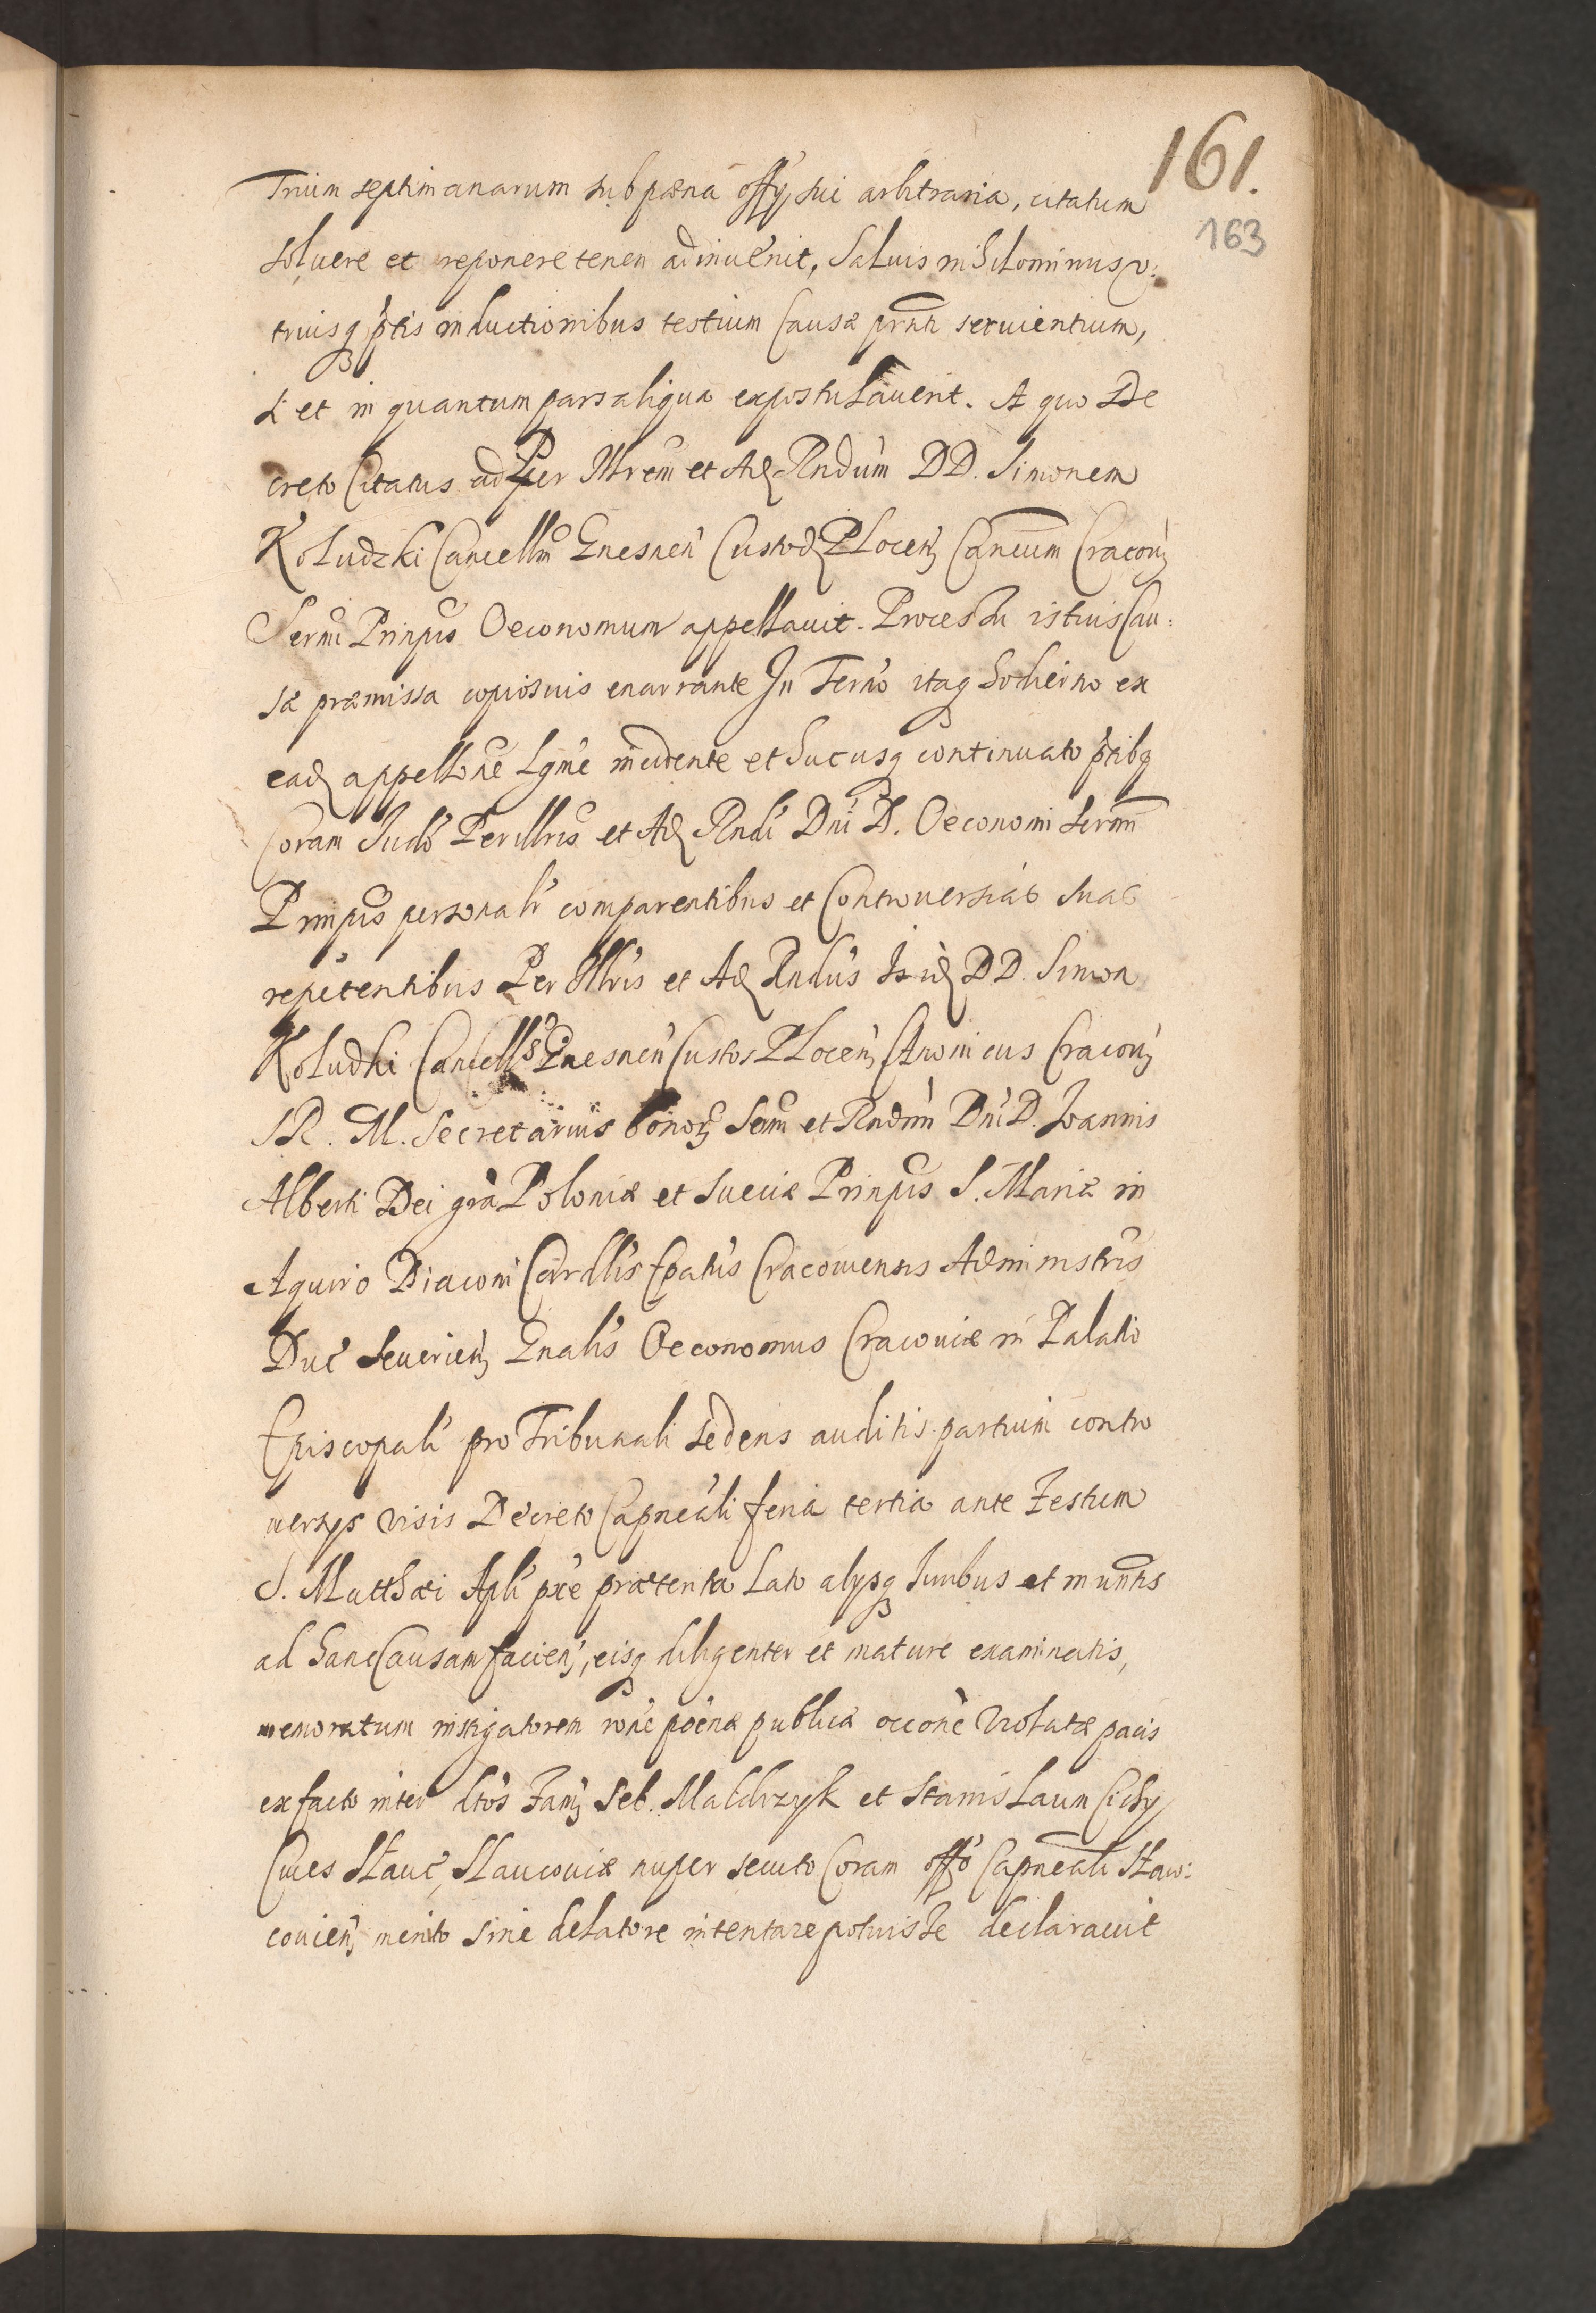 161.
163
Trium septimanarum sub pæna offÿ sui arbitraria, citatum
soluere et reponere tenen adinuenit, Saluis nihilominus v:
triusq ptis inductionibus testium Causæ prnti seruientium,
si et in quantum pars aliqua expostulauerit. A quo De
creto Citatus ad Per Illrem et Adm Rndum DD. Simonem
Koludzki Cancellm Gnesnen Custod Plocen Cancum Cracou
Sermi Prinpis Oeconomum appellauit. Processu istius Cau:
sæ præmissa copiosius enarrante In Termo itaq hodierno ex
ead appellone Lgme incidente et hucusq continuato ptibq
Coram Judo Perillris et Adm Rndi Dni D. Oeconomi Sermi
Prinpis personalr comparentibus et Controuersias suas
repetentibus Per Illris et Adm Rndus Isid DD. Simon
Koludki Cancells Gnesnen Custos Plocen Canonicus Cracou
S R. M. Secretarius bonor Sermi et Rndmi Dni D. Joannis
Alberti Dei gra Poloniæ et Sueciæ Prinpis S. Mariæ in
Aquiro Diaconi Cardlis Epatus Cracouiensis Administris
Duc Seuerien Gnalis Oeconomus Cracouiæ in Palatio
Episcopali pro Tribunali sedens auditis partium contro
uersÿs visis Decreto Capneali feria tertia ante Festum
S. Matthæi Apli pxe præterita Lato alÿsq Iuribus et munitis
ad hanc Causam facien, eisq diligenter et mature examinatis,
memoratum instigatorem rone poenæ publicæ occone violatæ pacis
ex facto inter dtos Fam Seb. Maldrzyk et Stanislaum Cichy
Ciues Slauc, Slaucouiæ nuper secuto Coram offo Capneali Slaw:
couien merito sine delatore intentare potuisse declarauit